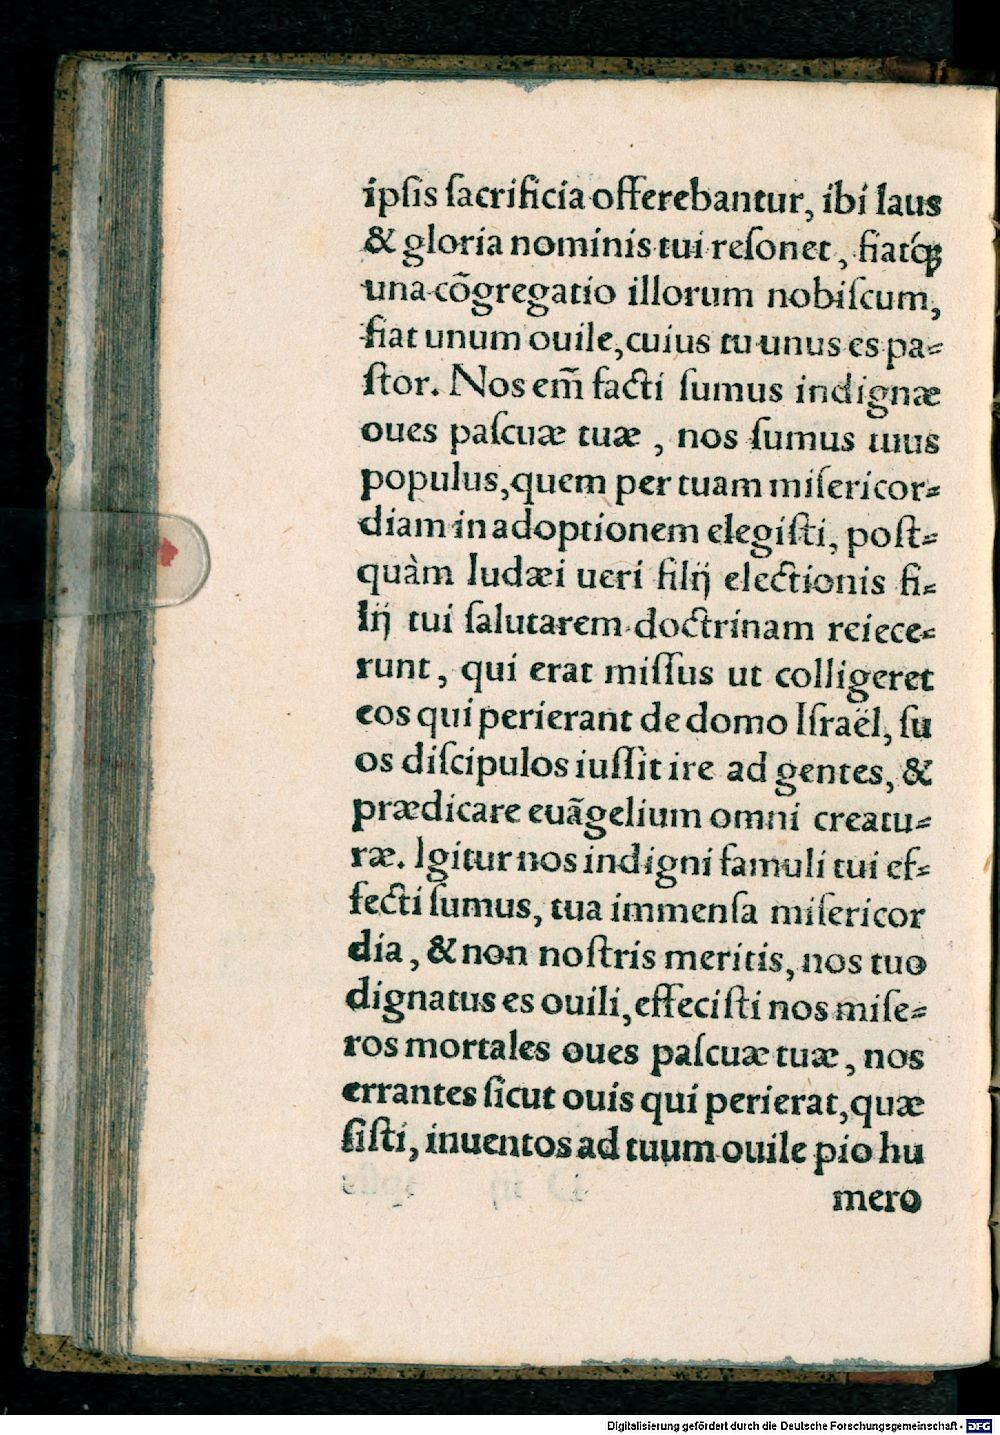 ipſis ſacrificia offerebantur, ibi laus
& gloria nominis tui reſonet, fiatq́ꝫ
una cõgregatio illorum nobiſcum,
fiat unum ouile, cuius tu unus es pa⸗
ſtor. Nos em̃ facti ſumus indignæ
oues paſcuæ tuæ, nos ſumus tuus
populus, quem per tuam miſericor⸗
diam in adoptionem elegiſti, poſt⸗
quàm Iudæi ueri filij electionis fi⸗
lij tui ſalutarem doctrinam reiece⸗
runt, qui erat miſſus ut colligeret
eos qui perierant de domo Iſraël, ſu
os diſcipulos iuſſit ire ad gentes, &
prædicare euãgelium omni creatu⸗
ræ. Igitur nos indigni famuli tui ef⸗
fecti ſumus, tua immenſa miſericor
dia, & non noſtris meritis, nos tuo
dignatus es ouili, effeciſti nos miſe⸗
ros mortales oues paſcuæ tuæ, nos
errantes ſicut ouis qui perierat, quæ
ſiſti, inuentos ad tuum ouile pio hu
mero
Digitalisierung gefördert durch die Deutsche Forschungsgemeinschaft - DFG